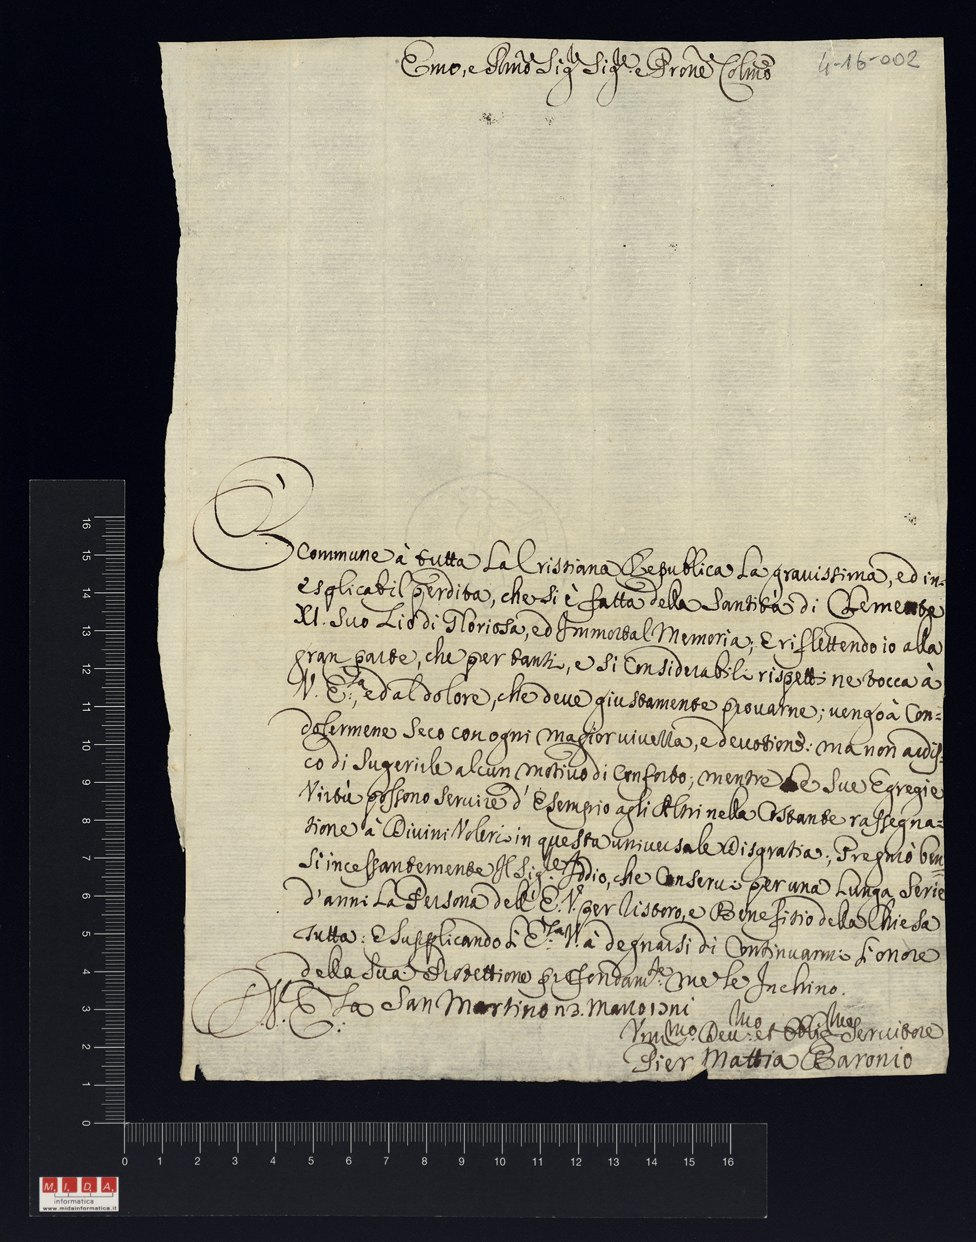 Emo, e Rmo Sig.re Sig.re e Prone Colmo
4-16-002
È
commune à tutta La Cristiana Republica La gravissima, ed in-
esplicabil perdita, che si è fatta della Santità di Clemente
XI. Suo Zio di Gloriosa, ed Immortal Memoria; E riflettendo io alla
gran parte, che per tanti, e si Considerabili rispetti ne tocca à
V. E.za, ed al dolore, che deve giustamente provarne; vengo à Con-
dolermene Seco con ogni magior vivezza, e devotione: ma non ardis-
co di Sugerirle alcun motivo di Conforto; mentre Le Sue Egregie
Virtù possono servire d'Esempio agli Altri nella Costante rassegna-
tione à Divini Voleri in questa universale Disgratia; Pregarò ben-
sì incessantemente Il Sig.re Iddio, che Conservi per una Lunga Serie
d'anni La Persona dell'E.V. per ristoro, e Benefitio della Chiesa
tutta: E Supplicando L'E.za V. à degnarsi di Continuarmi L'onore
della Sua Protettione profondam.te me Le Inchino.
D. V. E.za San Martino 23. Marzo 1721
Vmilmo. Dev.mo et Obligmo Servitore
Pier Mattia Baronio
16
15
14
13
12
11
10
9
8
7
6
5
4
3
2
1
0
0 1 2 3 4 5 6 7 8 9 10 11 12 13 14 15 16
M.I.D.A.
informatica
www.midainformatica.it